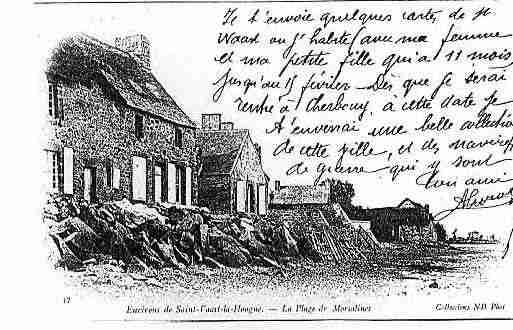 Je t'envoie quelques cartes de St
Waast où j'habite (avec ma femme
et ma petite fille qui a 11 mois
jusqu'au 15 février. Dès que je serai
rentré à Cherbourg, à cette date je
t'enverrai une belle collection
de cette ville, et des navires
de guerre qui y sont
Ton ami
17
Environs de Saint-Vaast-la-Hougue. — La Plage de Morsalines
Collections N.D Phot